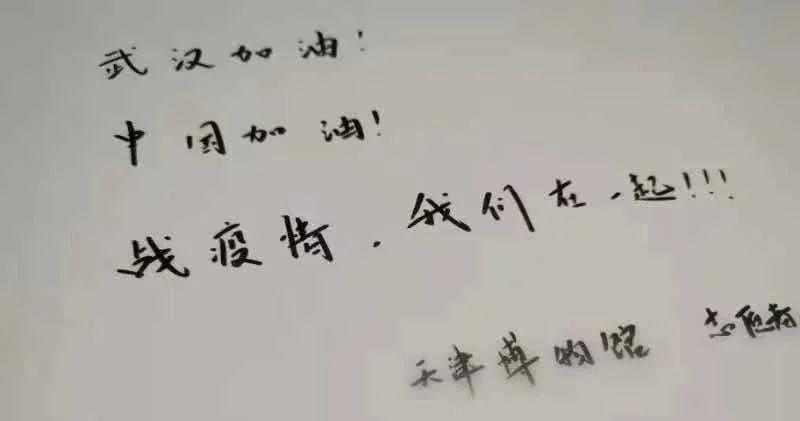 武汉加油!
中国加油!
战疫情,我们在一起!!!
天津博物馆 志愿者